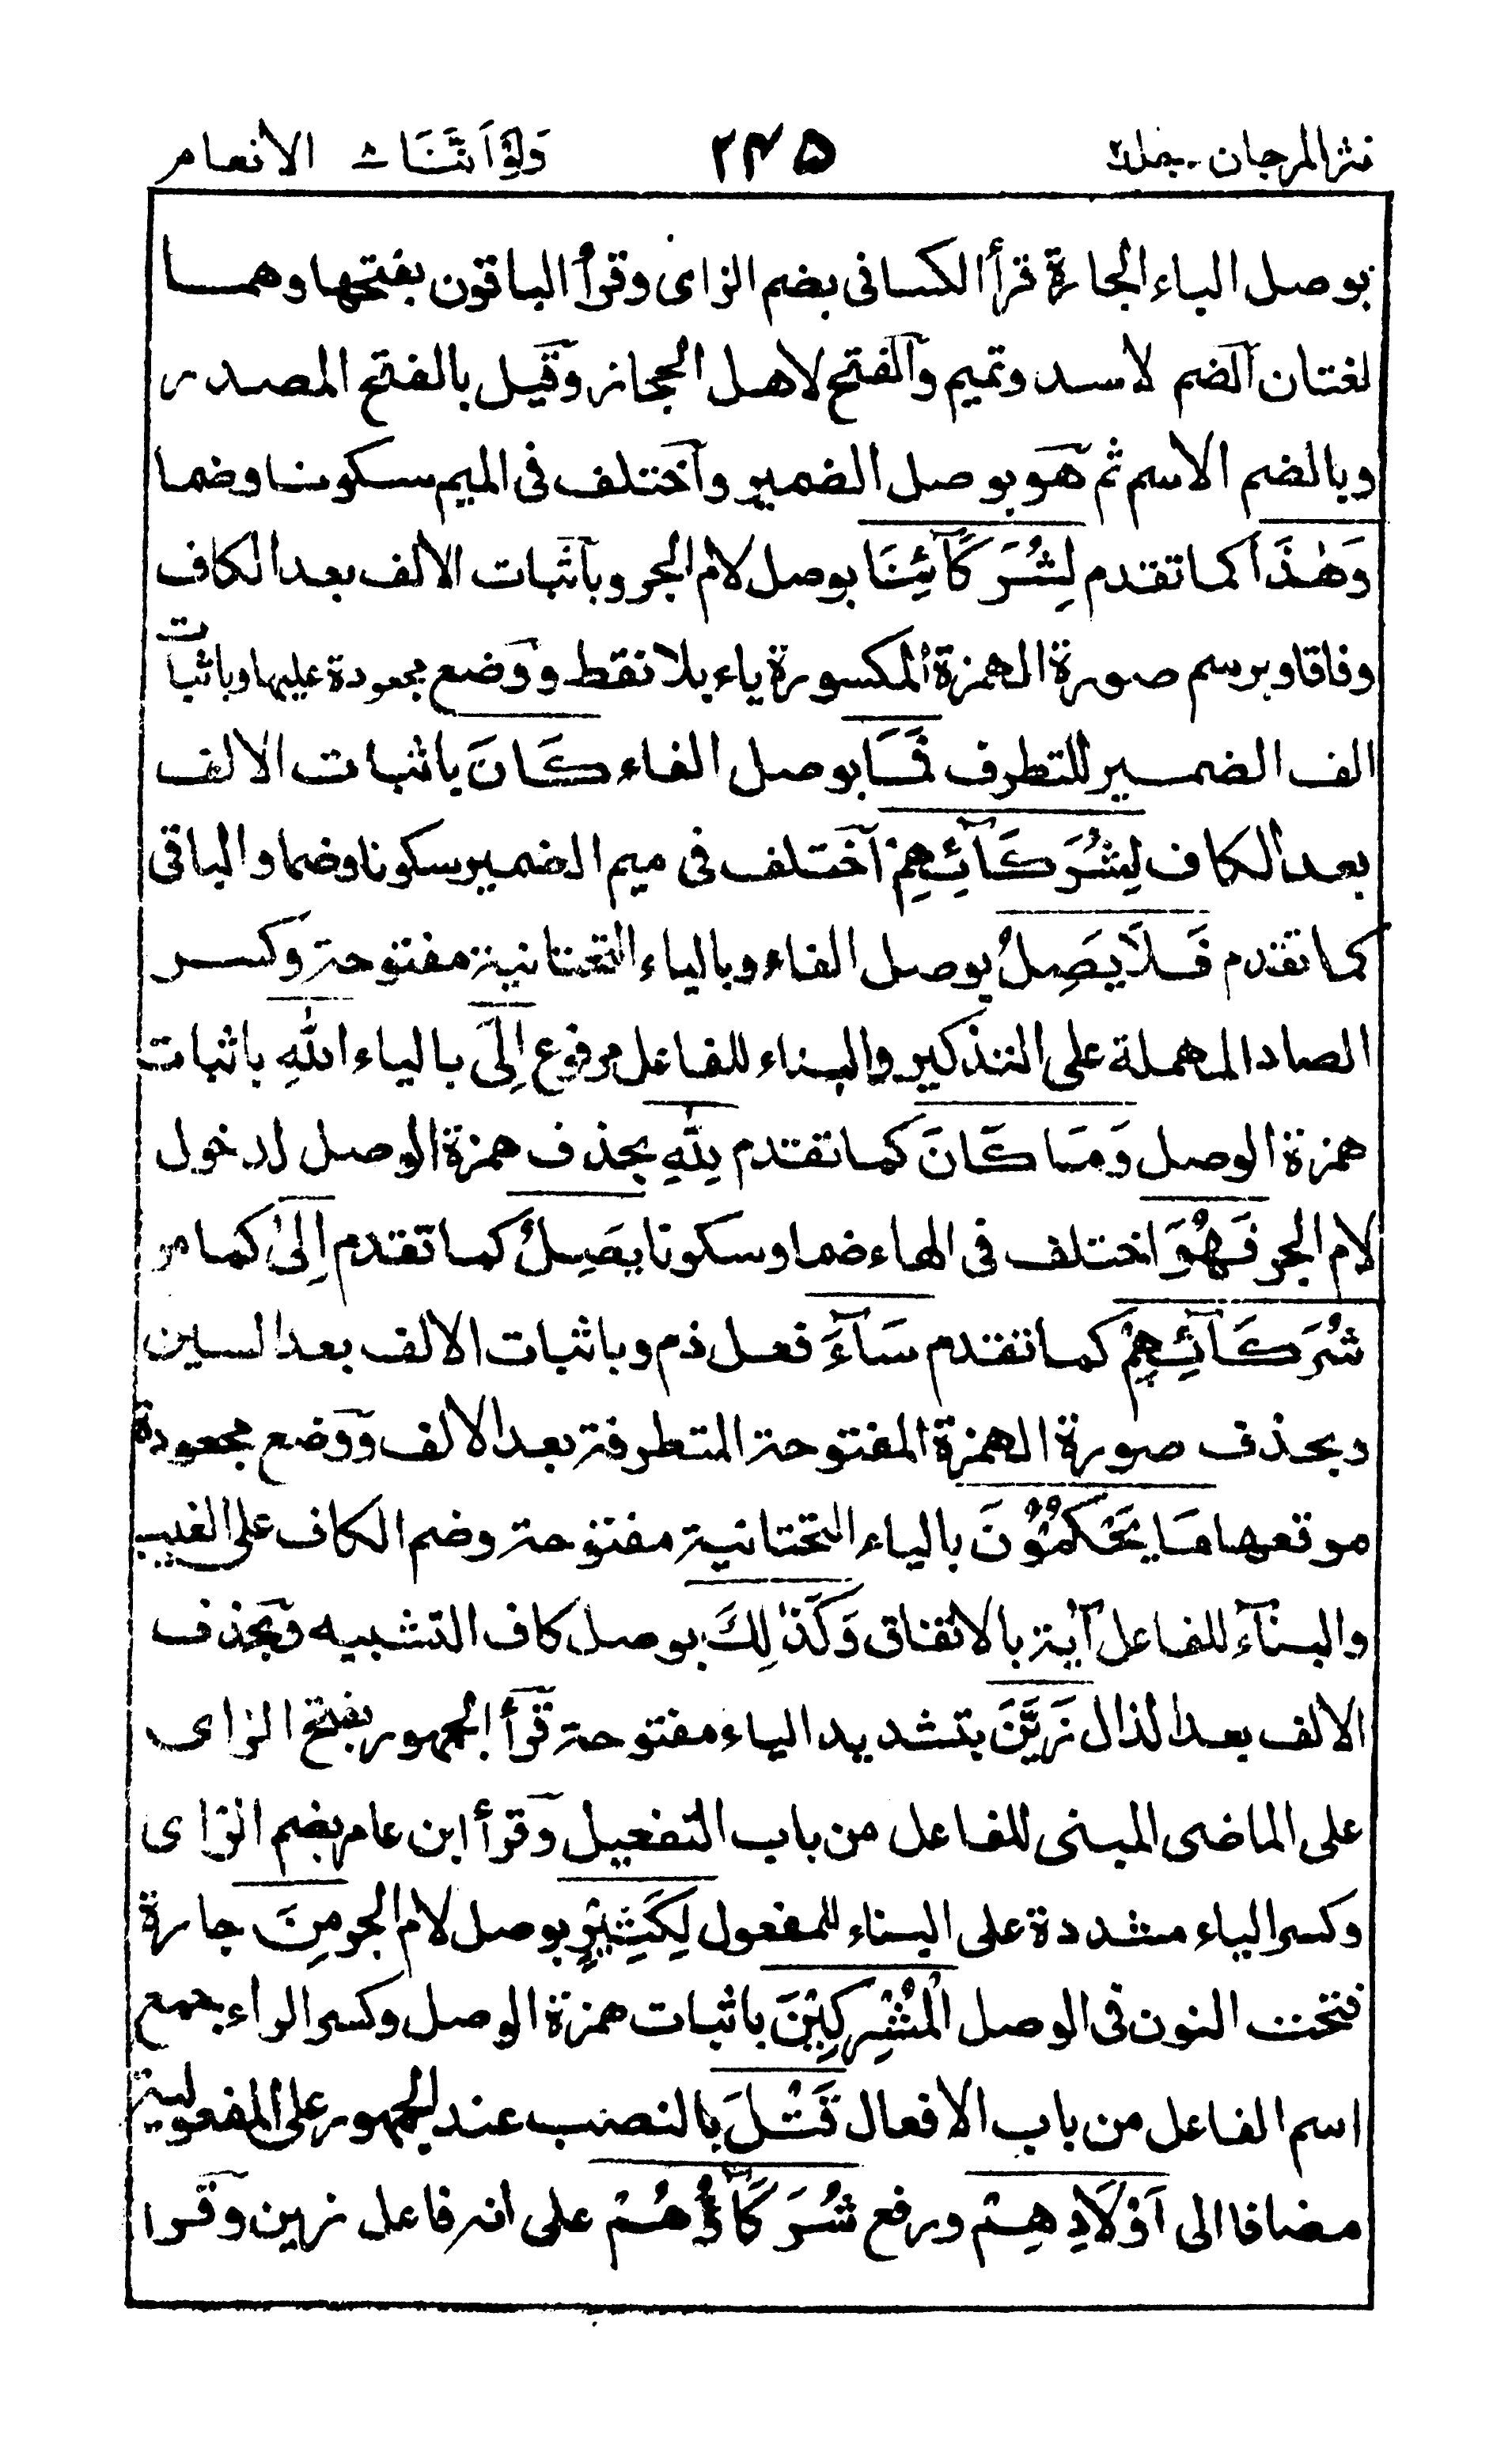 نثر المرجان - جلد ۲۴۵ ولو اننا ۸ الانعام
بوصل الباء الجارة قرأ الكسائى بضم الزاى وقرأ الباقون بفتحها وهما
لغتان آلضم لاسد وتميم وآلفتح لاهل الحجاز وقيل بالفتح المصدر
وبالضم الاسم ثم هو بوصل الضمير وآختلف فى الميم سكونا وضما
وَهٰذَا كما تقدم لِشُرَكَآئِنَا بوصل لام الجر وبآثبات الالف بعد الكاف
وفاقا وبرسم صورة الهمزة المكسورة ياء بلا نقط ووضع مجعودة عليها وباثبات
الف الضمير للتطرف فَمَا بوصل الفاء كَانَ باثبات الالف
بعد الكاف لِشُرَكَآئِهِمْ آختلف فى ميم الضمير سكونا وضما والباقى
كما تقدم فَلَا يَصِلُ بوصل الفاء وبالياء التحتانية مفتوحة وكسر
الصاد المهملة على التذكير والبناء للفاعل مرفوع اِلَى بالياء اللّٰهِ باثبات
همزة الوصل وَمَا كَانَ كما تقدم لِلّٰهِ بحذف همزة الوصل لدخول
لام الجر فَهُوَ اختلف فى الهاء ضما وسكونا يَصِلُ كما تقدم اِلٰى كما مر
شُرَكَآئِهِمْ كما تقدم سَآءَ فعل ذم وباثبات الالف بعد السين
وبحذف صورة الهمزة المفتوحة المتطرفة بعد الالف ووضع مجعودة
موقعها مَا يَحْكُمُوْنَ بالياء التحتانية مفتوحة وضم الكاف على الغيب
والبنآء للفاعل آية بالاتفاق وَكَذٰلِكَ بوصل كاف التشبيه وبحذف
الالف بعد الذال زَيَّنَ بتشديد الياء مفتوحة قرأ الجمهور بفتح الزاى
على الماضى المبنى للفاعل من باب التفعيل وقرأ ابن عامر بضم الزاى
وكسر الياء مشددة على البناء للمفعول لِكَثِيْرٍ بوصل لام الجر مِنَ جارة
فتحت النون فى الوصل الْمُشْرِكِيْنَ باثبات همزة الوصل وكسر الراء جمع
اسم الفاعل من باب الافعال قَتْلَ بالنصب عند الجمهور على المفعولية
مضافا الى اَوْلَادِهِمْ ورفع شُرَكَآؤُهُمْ على انه فاعل زين وقرا